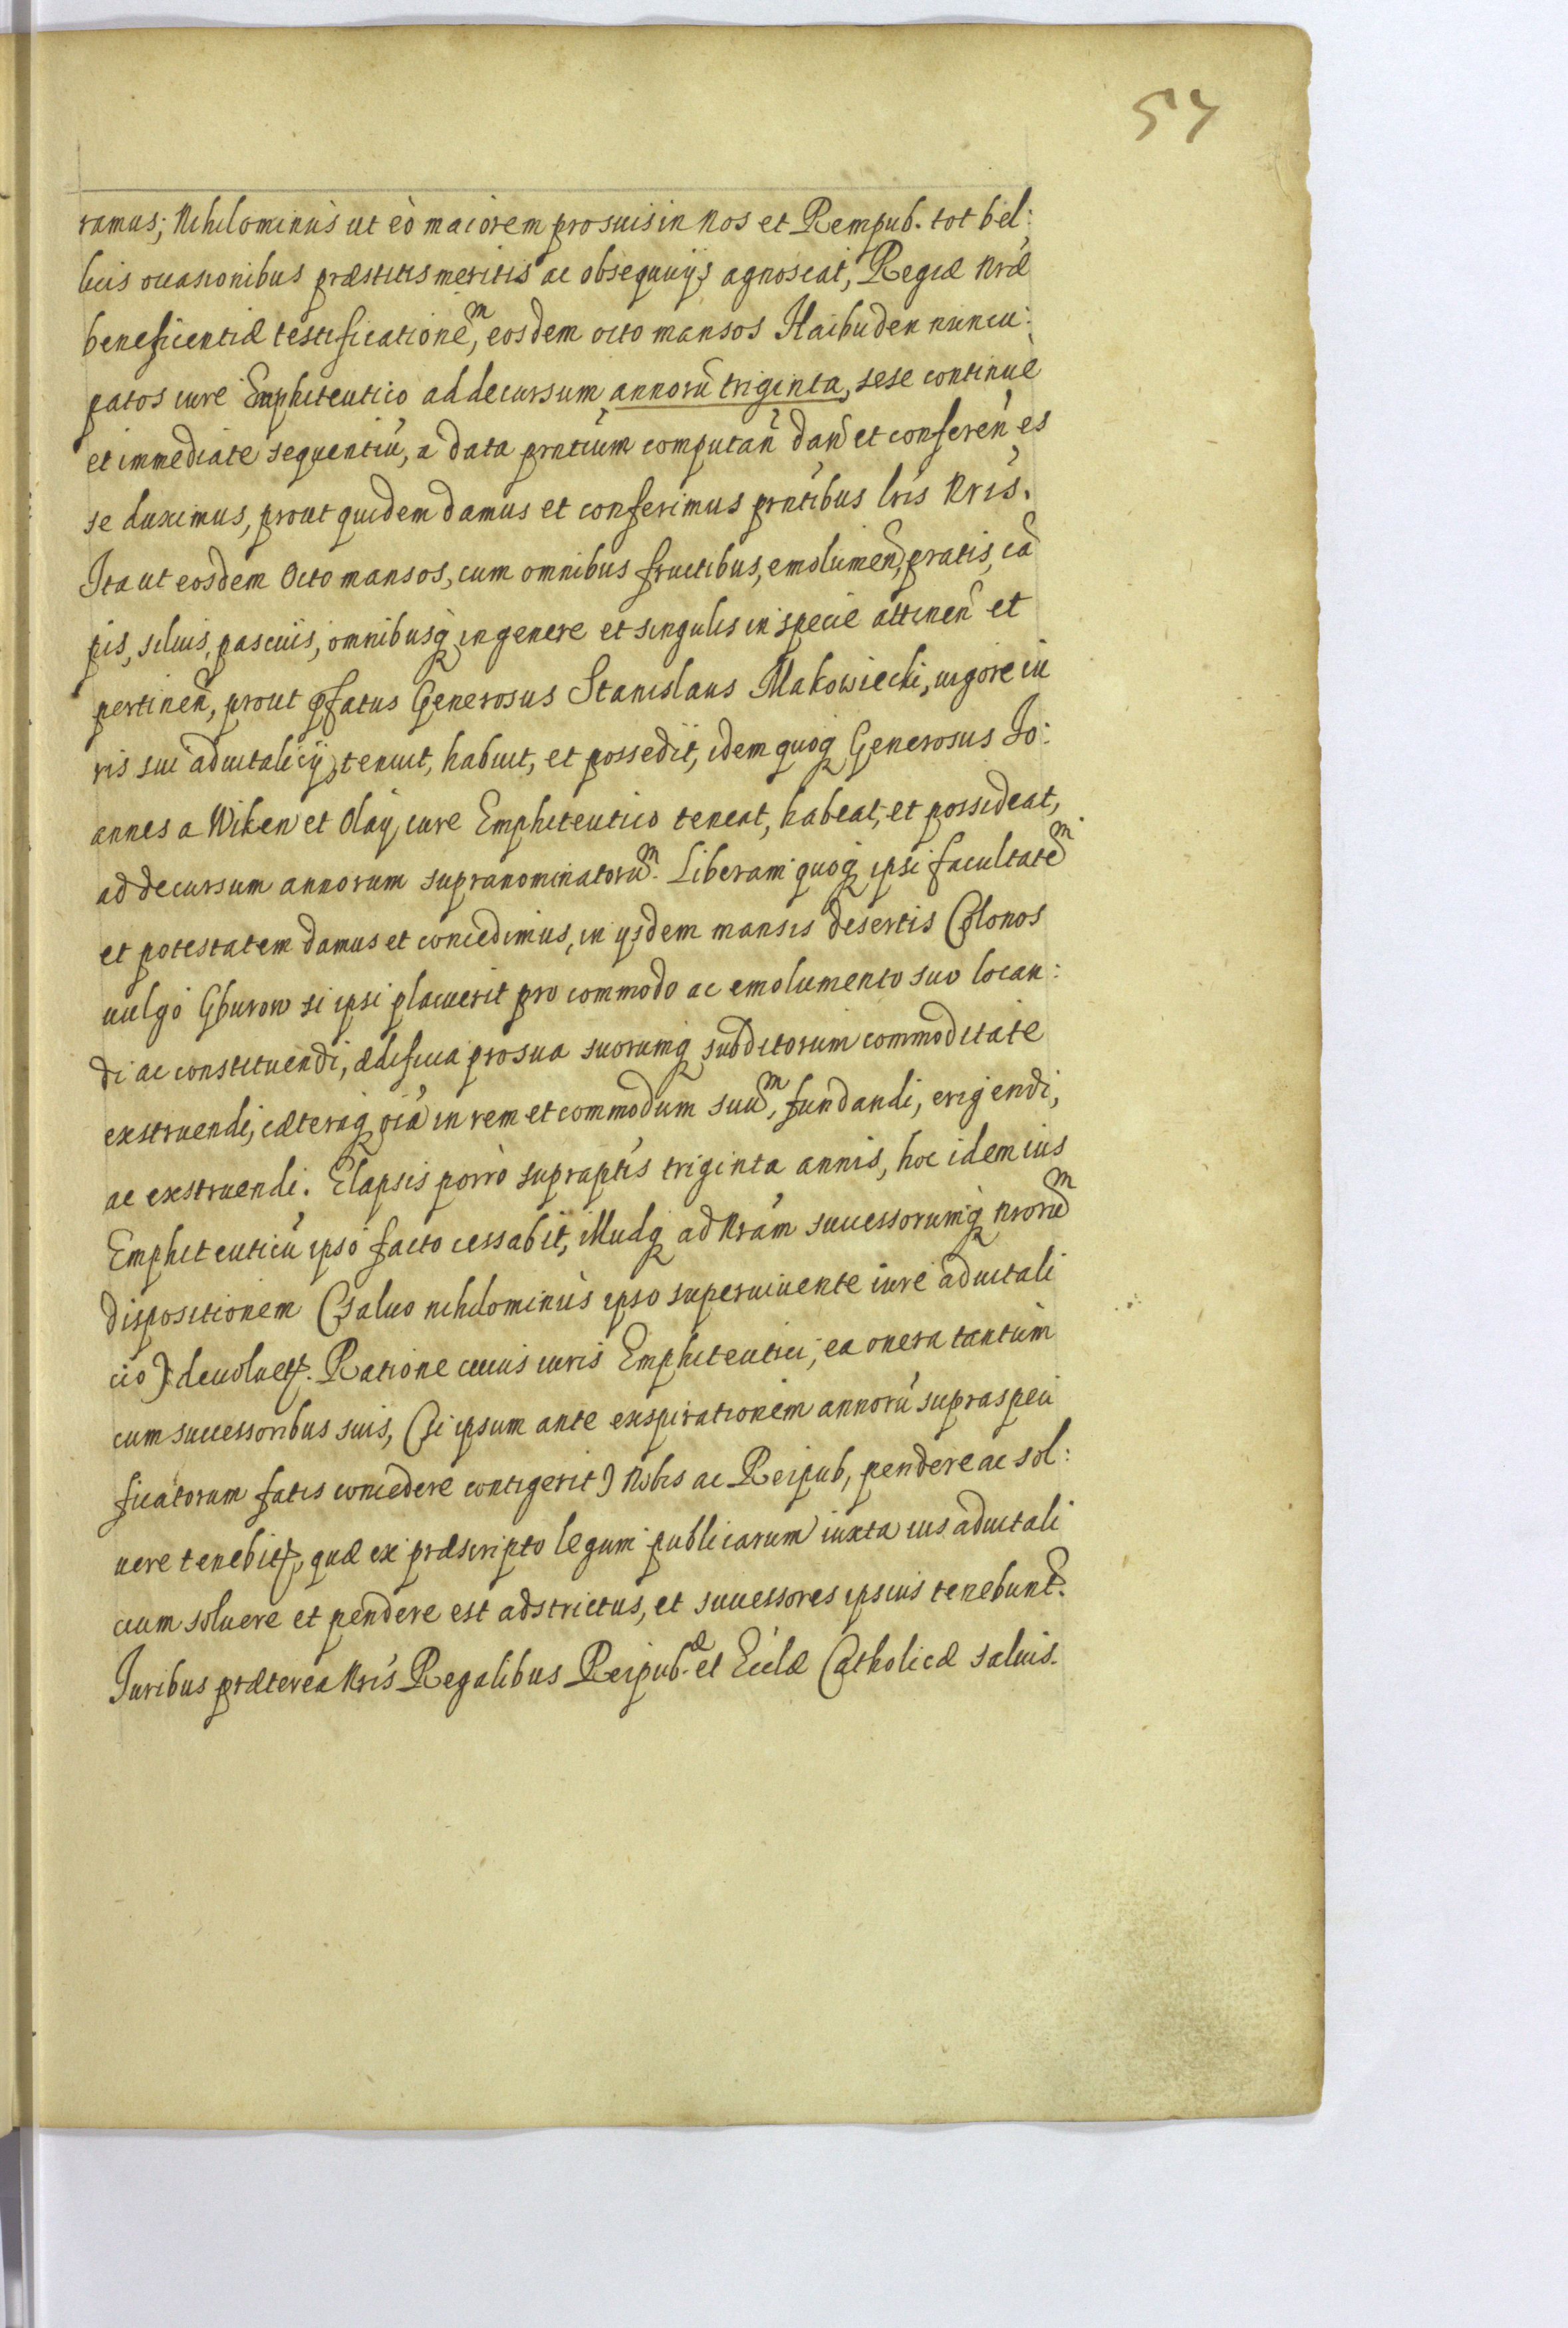 57
ramus; Nihilominùs ut eò maiorem pro suis in Nos et Rempub. tot bel:
licis occasionibus præstitis meritis ac obsequijs agnoscat, Regiæ Nræ
beneficentiæ testificationẽm, eosdem octo mansos Haibuden nuncu:
patos iure Emphiteutico ad decursum annorũ triginta, sese continuè
et immediatè sequentiũ, a data pñtium computañ dañ et confereñ es
se duximus, prout quidem damus et conferimus pñtibus lrĩs Nrĩs.
Ita ut eosdem Octo mansos, cum omnibus fructibus, emolumeñ, pratis, cã
pis, siluis, pascuis, omnibusq́ in genere et singulis in specie attineñ et
pertineñ, prout p̃fatus Generosus Stanislaus Makowiecki, uigore iu
ris sui aduitalicij tenuit, habuit, et possedit, idem quoq́ Generosus Jo:
annes a Wiken et Olay iure Emphiteutico teneat, habeat, et possideat,
ad decursum annorum supranominatorũm. Liberam quoq́ ipsi facultatẽm
et potestatem damus et concedimus, in ijsdem mansis desertis Colonos
uulgò Gburow si ipsi placuerit pro commodo ac emolumento suo locan:
di ac constituendi, ædificia pro sua suorumq́ subditorum commoditate
exstruendi, cæteraq́ oĩa in rem et commodum suũm, fundandi, erigendi,
ac exstruendi. Elapsis porrò supraptĩs triginta annis, hoc idem ius
Emphiteuticũ ipso facto cessabit, illudq́ ad Nrãm successorumq́ Nrorũm
dispositionem (saluo nihilominùs ipso superuiuente iure aduitali
cio) deuoluet̃. Ratione cuius iuris Emphiteutici, ea onera tantùm
cum successoribus suis, (si ipsum ante exspirationem annorũ supraspeci
ficatorum fatis concedere contigerit) Nobis ac Reipub, pendere ac sol:
uere tenebit̃, quæ ex præscripto legum publicarum iuxta ius aduitali
cium soluere et pendere est adstrictus, et successores ipsius tenebunt̃.
Iuribus prætereà Nrĩs Regalibus Reipub.æ et Ecclæ Catholicæ saluis.